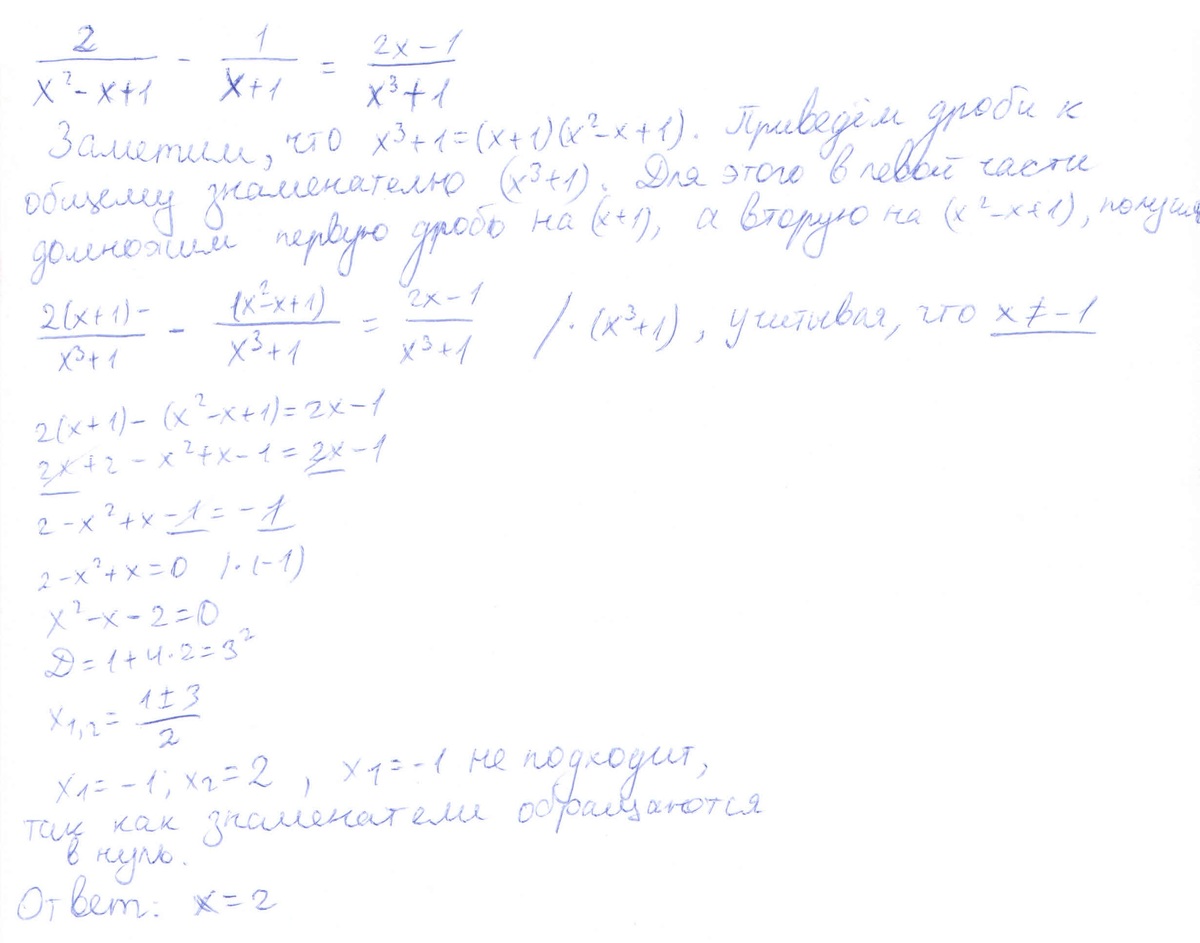 2/(x²-x+1) - 1/(x+1) = (2x-1)/(x³+1)
Заметим, что x³+1=(x+1)(x²-x+1). Приведём дроби к
общему знаменателю (x³+1). Для этого в левой части
домножим первую дробь на (x+1), а вторую на (x²-x+1), получим
(2(x+1)-)/(x³+1) - (1(x²-x+1))/(x³+1) = (2x-1)/(x³+1) /·(x³+1), учитывая, что x≠-1
2(x+1)-(x²-x+1)=2x-1
2x+2-x²+x-1=2x-1
2-x²+x-1=-1
2-x²+x=0 /·(-1)
x²-x-2=0
D=1+4·2=3²
x₁,₂=(1±3)/2
x₁=-1; x₂=2, x₁=-1 не подходит,
так как знаменатели обращаются
в нуль.
Ответ: x=2